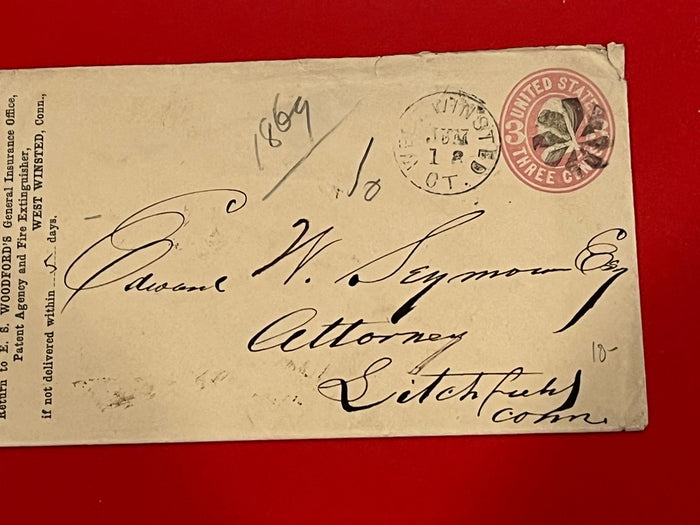 Return to E. S. WOODFORD'S General Insurance Office,
Patent Agency and Fire Extinguisher,
WEST WINSTED, Conn.,
if not delivered within 5 days.
1869
WEST WINSTED
JUN
12
CT.
UNITED STATES
THREE CENTS
3
To
Edward W. Seymour Esq
Attorney
Litchfield
Conn.
10-